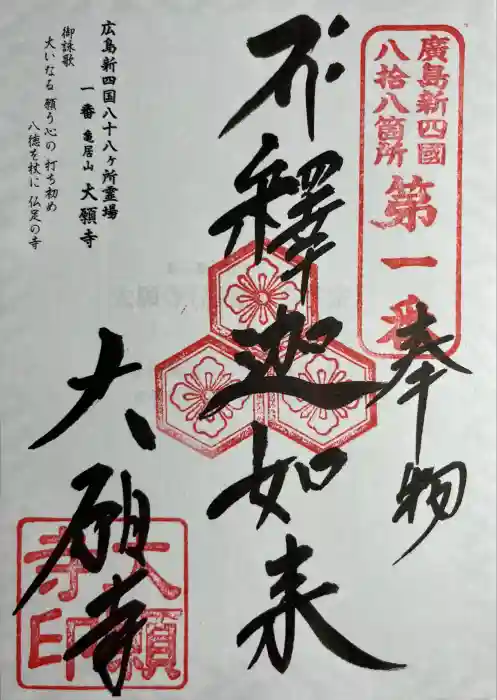 廣島新四國
八拾八箇所
第一番
奉
釋迦如来
大願寺
大願
寺印
広島新四国八十八ヶ所霊場
一番 亀居山 大願寺
御詠歌
大いなる 願う心の 打ち初め
八徳を杖に 仏足の寺